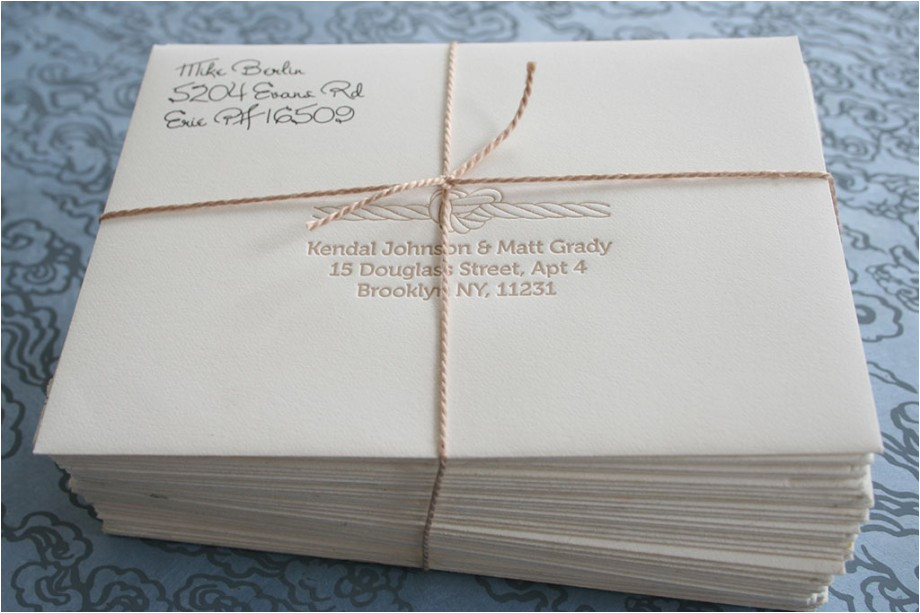 Mike Berlin
5204 Evans Rd
Erie PA 16509
Kendal Johnson & Matt Grady
15 Douglass Street, Apt 4
Brooklyn NY, 11231